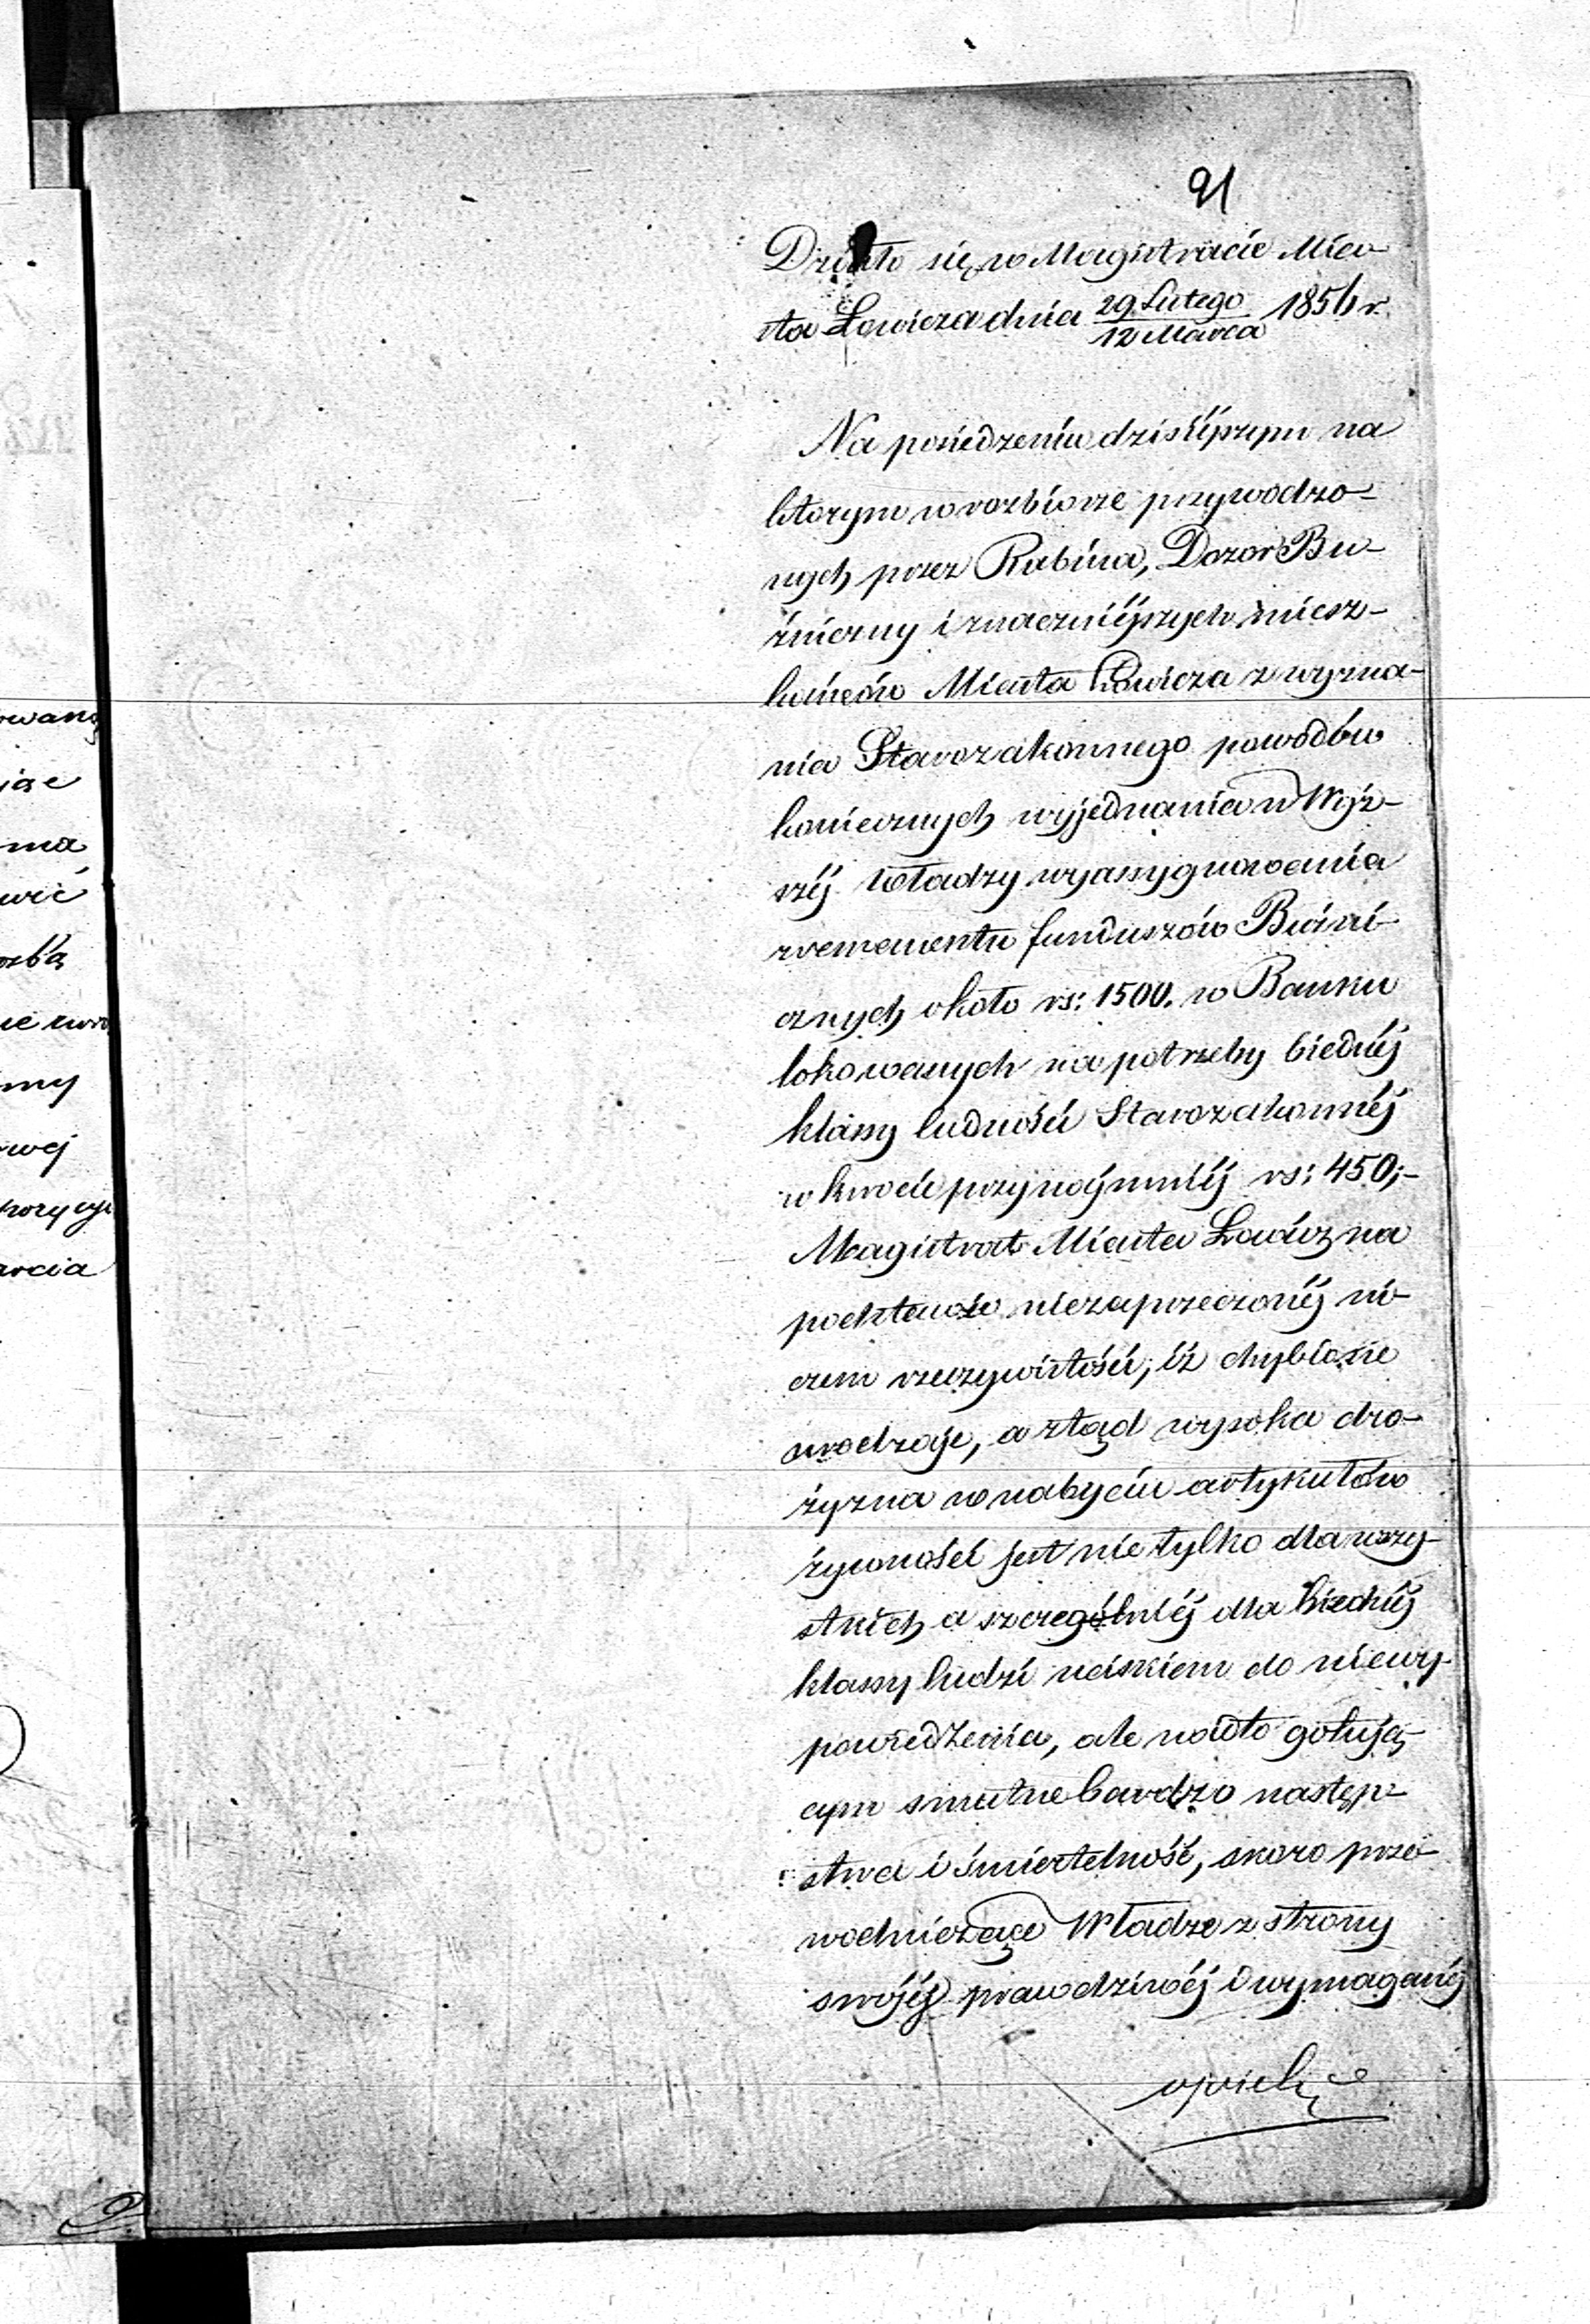 91
Działo się w Magistracie Mia-
sta Łowicza dnia 29 Lutego 1856 r.
12 Marca
Na posiedzeniu dzisiéjszym na
którym w rozbiorze przywodzo-
nych przez Rabina, Dozór Bu-
źniczny i znaczniéjszych miesz-
kańców Miasta Łowicza z wyzna-
nia Starozakonnego powodów
koniecznych wyjednania u Wyż-
széj Władzy wyassygnowania
z remementu funduszów Buźni-
cznych około rs: 1500. w Banku
lokowanych na potrzeby biednéj
klassy ludności Starozakonnéj
w kwocie przynajmniéj rs: 450;-
Magistrat Miasta Łowicz na
podstawie niezaprzeczonéj ni-
czem rzeczywistości, iż chybione
urodzaje, a ztąd wysoka dro-
żyzna w nabyciu artykułów
żywności jest nie tylko dla wszy-
stkich a szczególniéj dla biednéj
klassy ludzi uciskiem do niewy-
powiedzenia, ale nadto gotują-
cym smutne bardzo następ-
stwa i śmiertelność, skoro prze-
wodniczące Władze z strony
swojéj prawdziwéj i wymaganéj
opieki
owaną
jąc
ma
wić
ozbą
my
wej
arcia